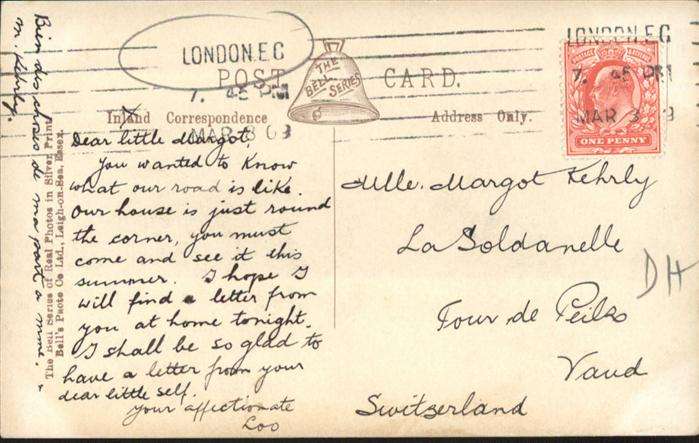 LONDON.E.C
7. 45 PM
MAR 3 08
POST CARD.
THE
BELL
SERIES
LONDON.E.C
7. 45 PM
MAR 3 8
ONE PENNY
Inland Correspondence
Address Only.
Dear little Margot,
You wanted to know
what our road is like.
Our house is just round
the corner, you must
come and see it this
summer. I hope I
will find a letter from
you at home tonight.
I shall be so glad to
have a letter from your
dear little self.
your affectionate
Loo
Mlle. Margot Kehrly
La Soldanelle
Tour de Peilz
Vaud
Switzerland
DH
Bien des choses de ma part a mme.
M. Kehrly.
The Bell Series of Real Photos in Silver Print
Bell's Photo Co Ltd., Leigh-on-Sea, Essex.